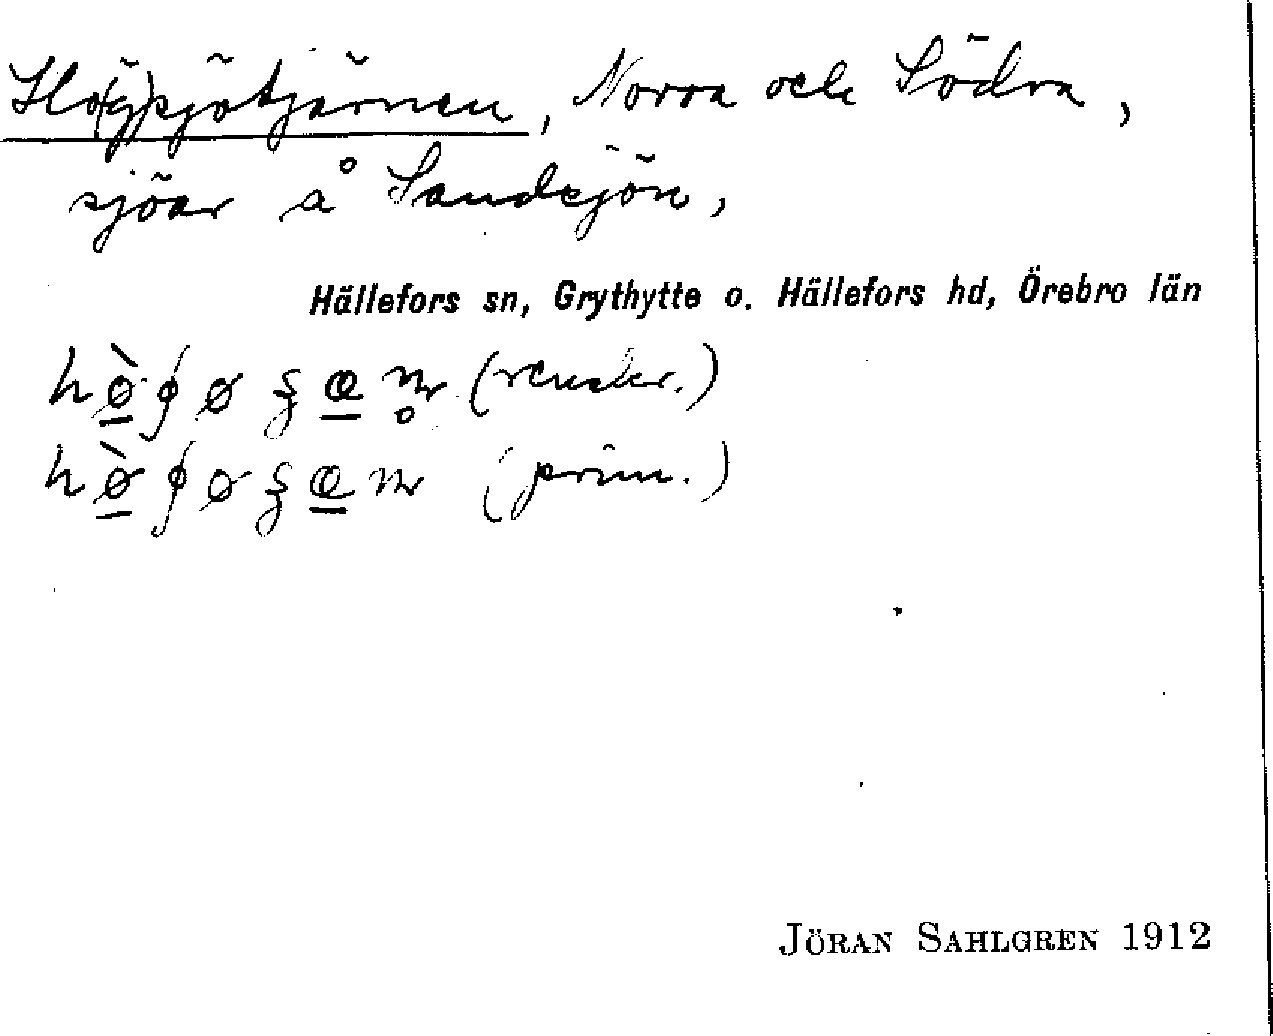 Hö(g)sjötjärnen, Norra och Södra,
sjöar å Sandsjön,
Hällefors sn, Grythytte o. Hällefors hd, Örebro län
(prim.)
JÖRAN SAHLGREN 1912